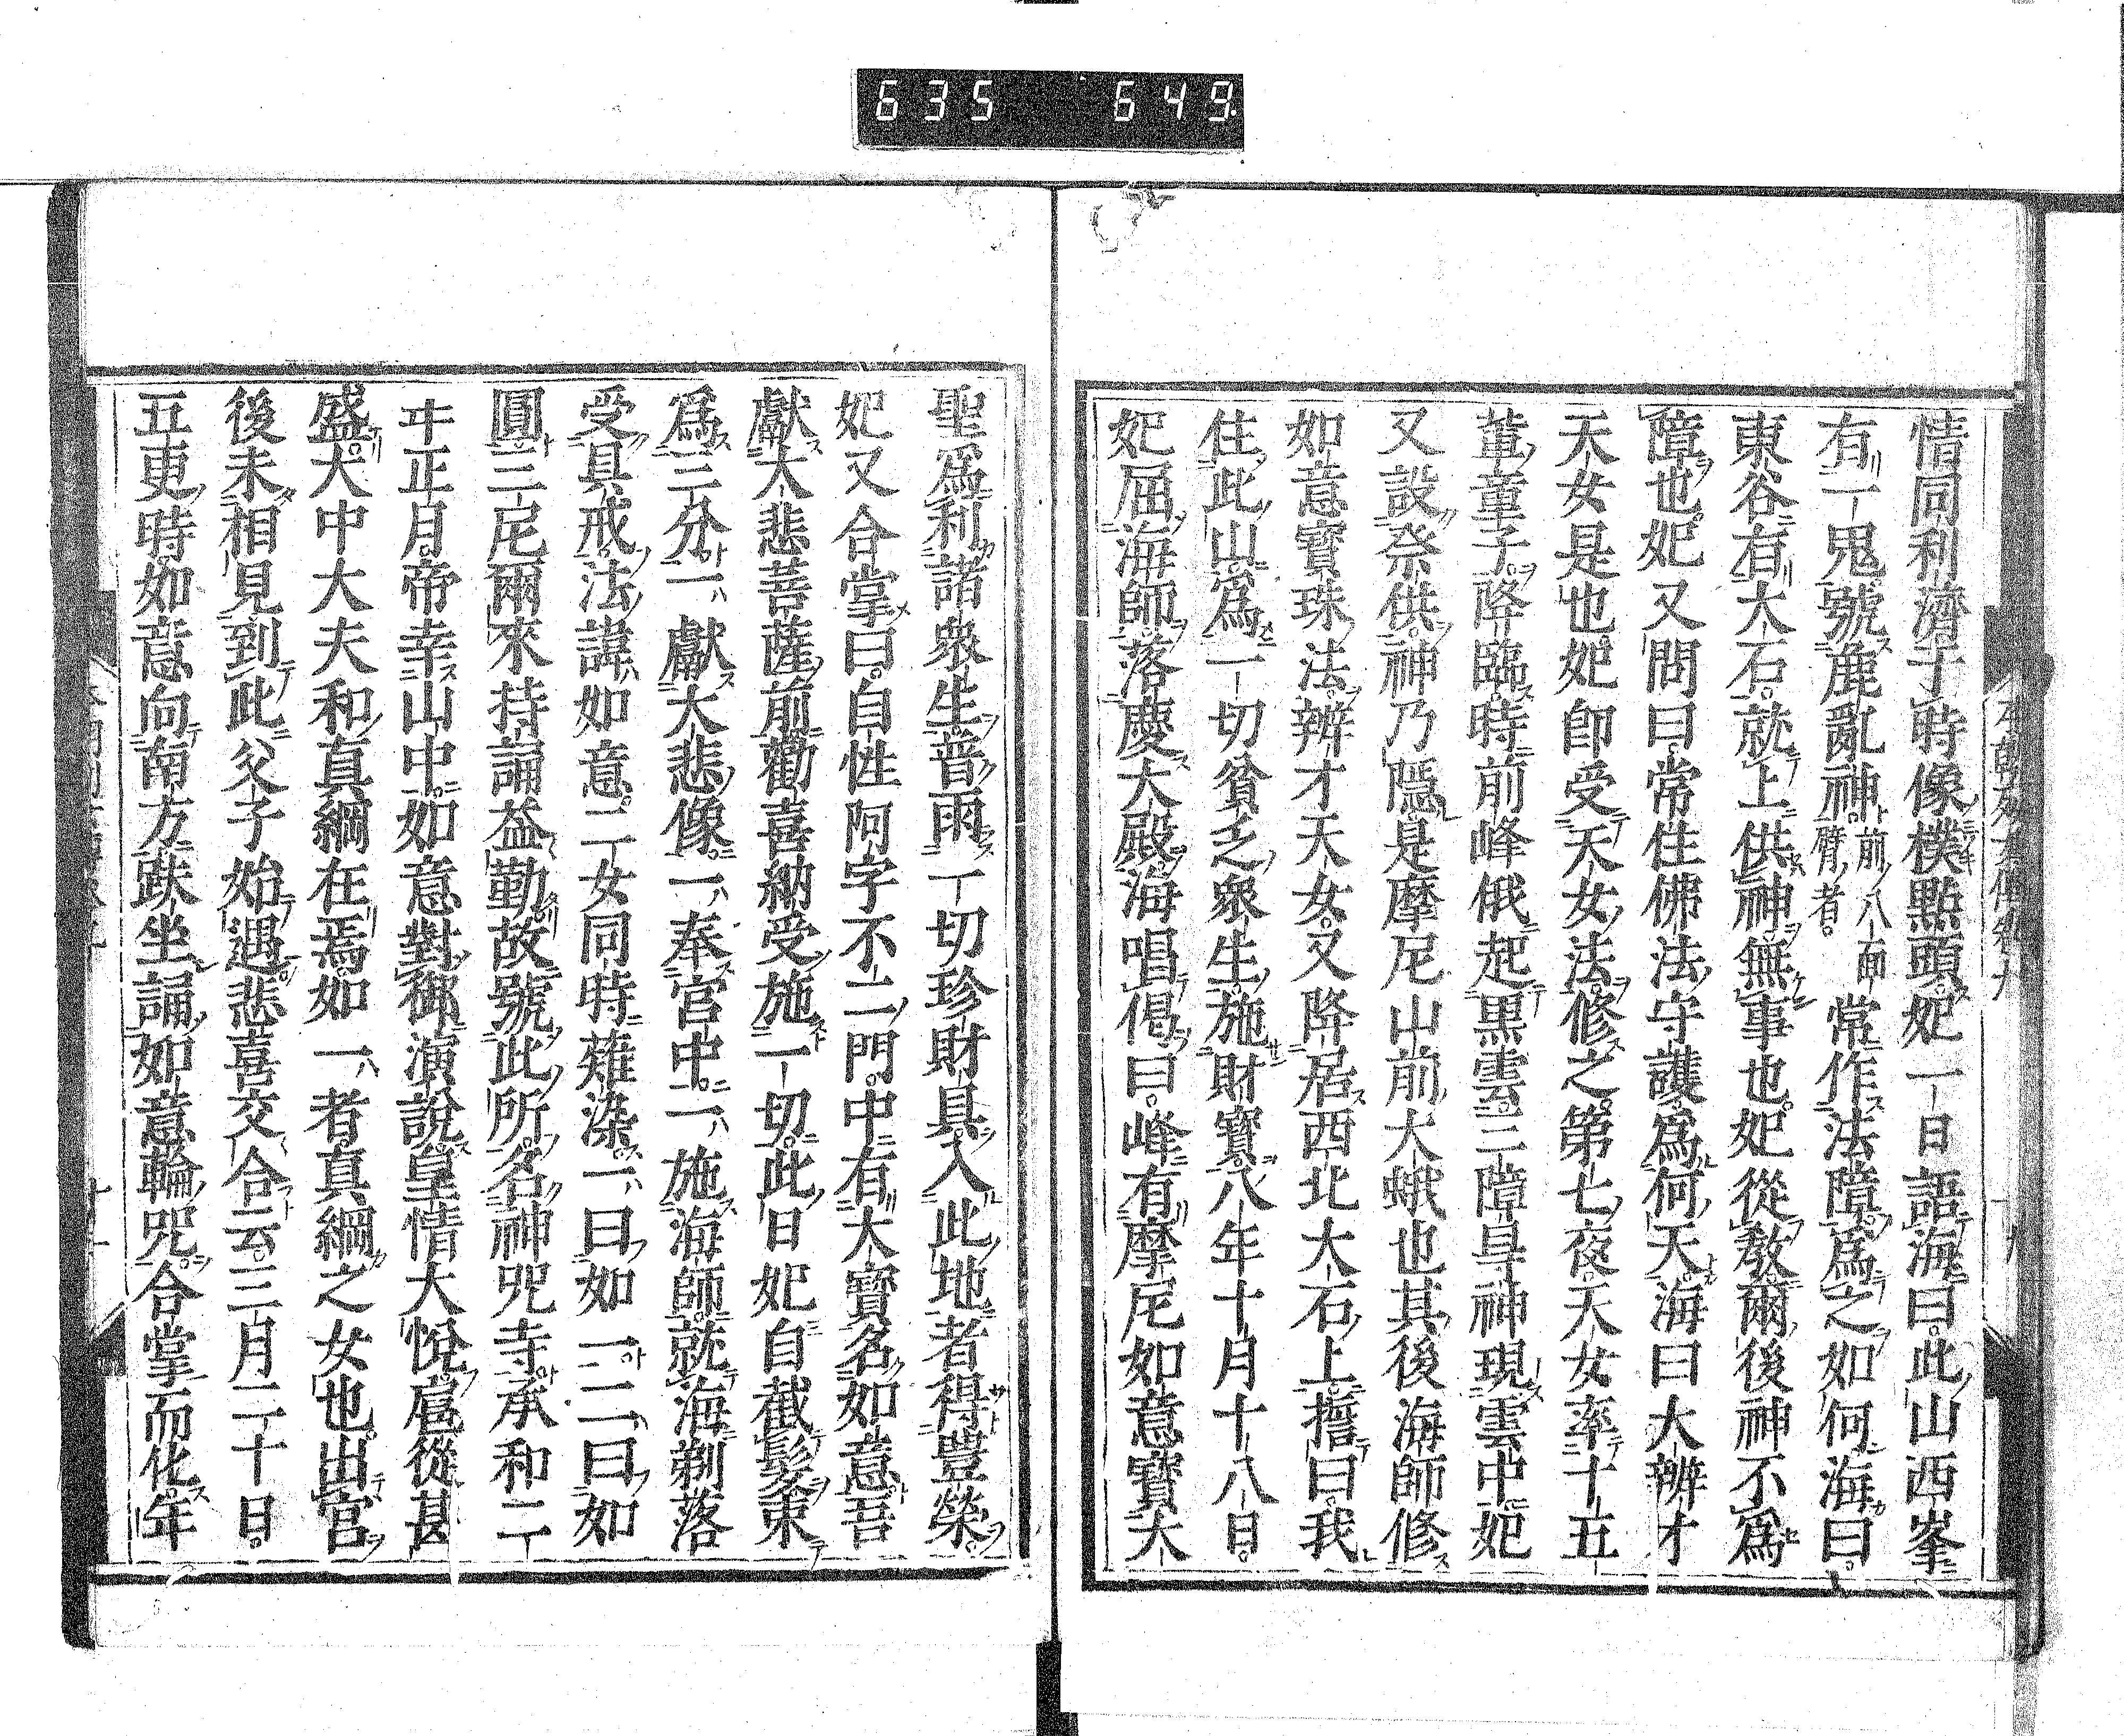 635 649
情同利濟于時像樸點頭妃一日語海曰此山西峯
有一鬼號麁亂神前八面臂者常作法障爲之如何海曰
東谷有大石就上供神無事也妃從敎爾後神不爲
障也妃又問曰常住佛法守護爲何天海曰大辨才
天女是也妃卽受天女法修之第七夜天女率十五
童子降臨時前峰俄起黑雲三障㝵神現雲中妃
又設祭供神乃隱是摩尼山前大蛾也其後海師修
如意寶珠法辨才天女又降居西北大石上誓曰我
住此山爲一切貧乏衆生施財寶八年十月十八日
妃屈海師落慶大殿海唱偈曰峰有摩尼如意寶大
聖爲利諸衆生普雨一切珍財具入此地者得豊榮
妃又合掌曰自性阿字不二門中有大寶名如意吾
獻大悲菩薩前勸喜納受施一切此日妃自截髮束
爲三分一獻大悲像一奉宮中一施海師就海剃落
受具戒法諱如意二女同時薙染一曰如一二曰如
圓三尼爾來持誦益勤故號此所名神咒寺承和二
年正月帝幸山中如意對御演說皇情大悅扈從甚
盛大中大夫和真綱在焉如一者真綱之女也出宮
後未相見到此父子始遇悲喜交合云三月二十日
五更時如意向南方趺坐誦如意輪咒合掌而化年